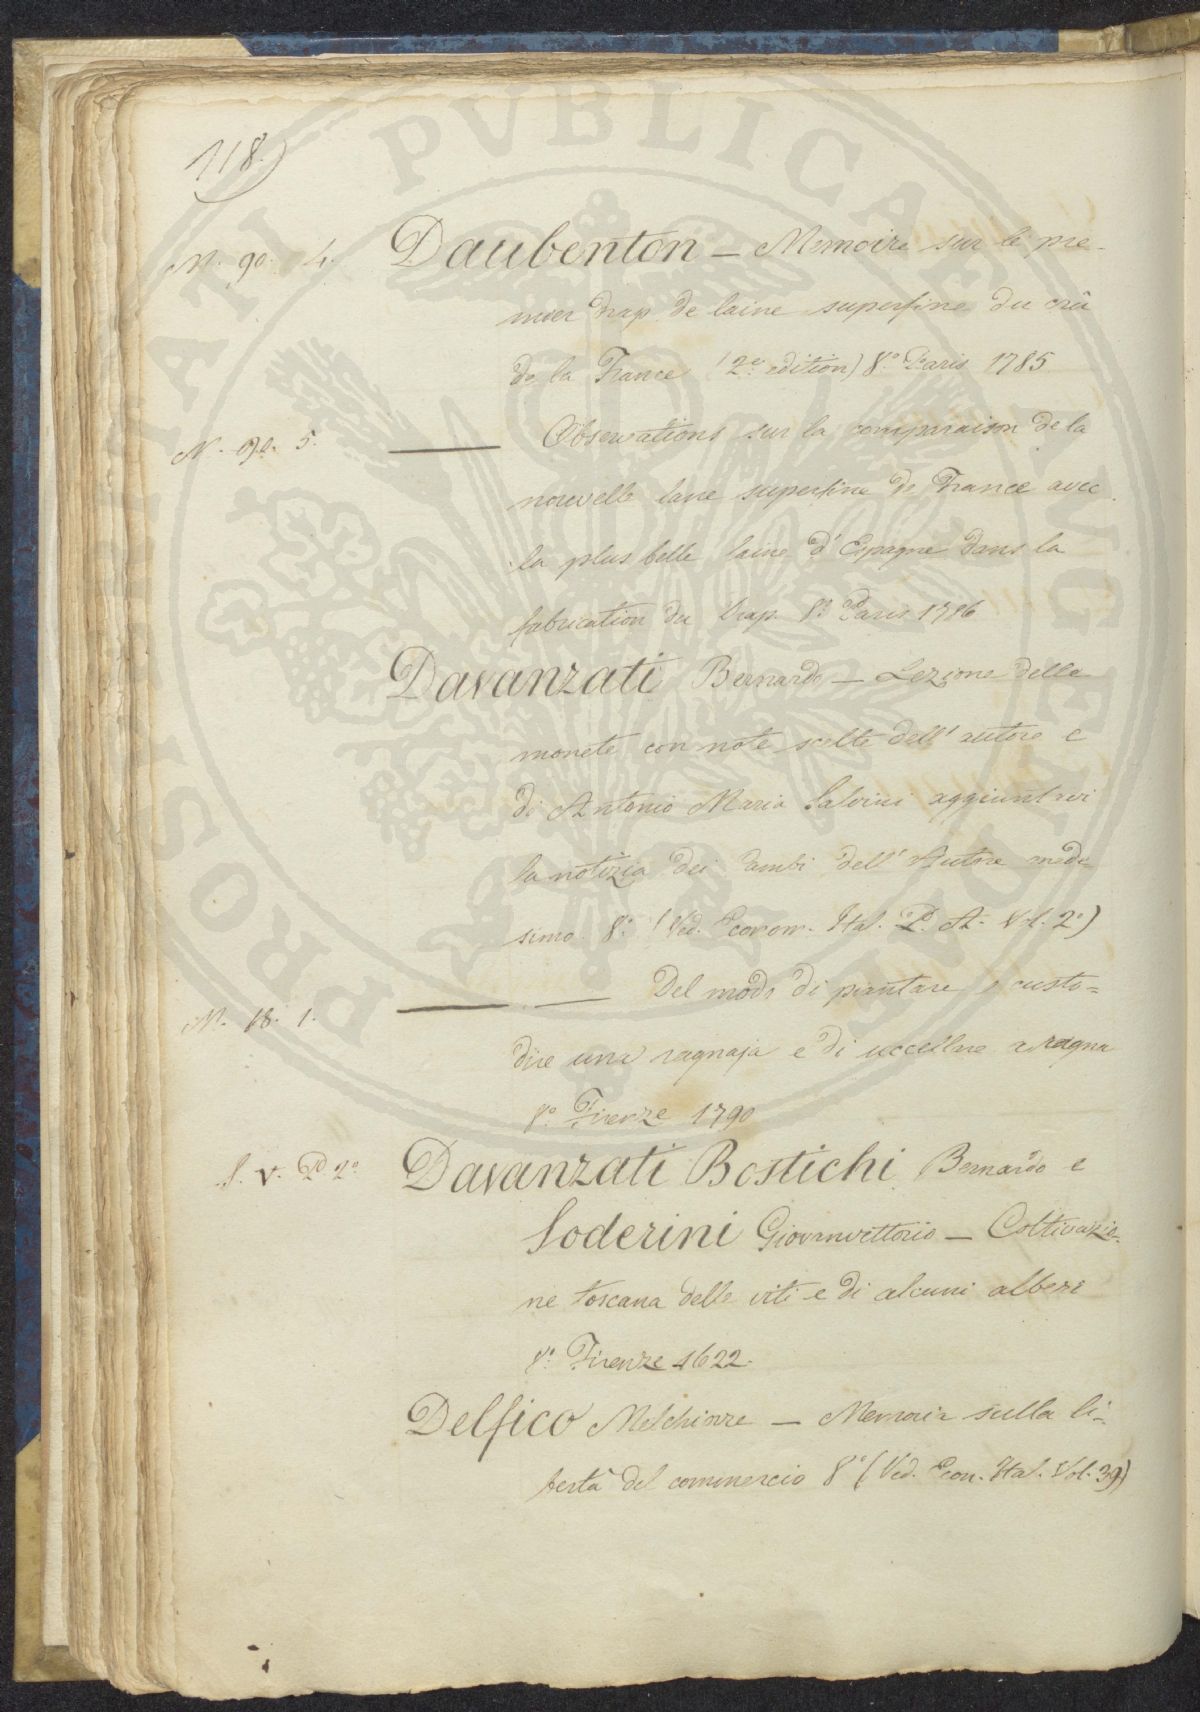 118.
N. 90. 4. Daubenton — Memoire sur le pre-
mier drap de laine superfine du crû
de la France (2e. edition) 8.° Paris 1785
N. 90. 5. —— Observations sur la comparaison de la
nouvelle lane superfine de France avec
la plus belle laine d'Espagne dans la
fabrication du Drap. 8.° Paris 1786
Davanzati Bernardo — Lezione delle
monete con note scelte dell'autore e
di Antonio Maria Salvini aggiuntavi
la notizia dei Cambi dell'Autore mede
simo 8.° (Ved. Econom. Ital. P. A. Vol. 2°)
N. 18. 1. —— — Del modo di piantare e custo=
dire una ragnaja e di uccellare a ragna
8.° Firenze 1790
S. V. Pd 2° Davanzati Bostichi Bernardo e
Soderini Giovanvettorio — Coltivazio-
ne toscana delle viti e di alcuni alberi
8.° Firenze 1622.
Delfico Melchiorre — Memoria sulla li-
bertà del commercio 8° (Ved. Econ. Ital. Vol. 39)
PROSPERITATI PVBLICAE AVGENDAE